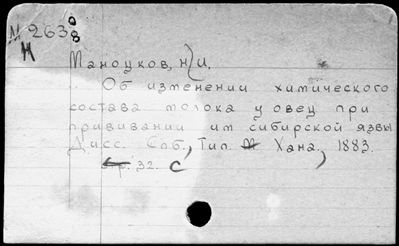 М 263 8/8
М
Маноцков, Н. И.
Об изменении химического
состава молока у овец при
прививании им сибирской язвы
Дисс. Спб., Тип. М Хана, 1883.
стр. 32. с